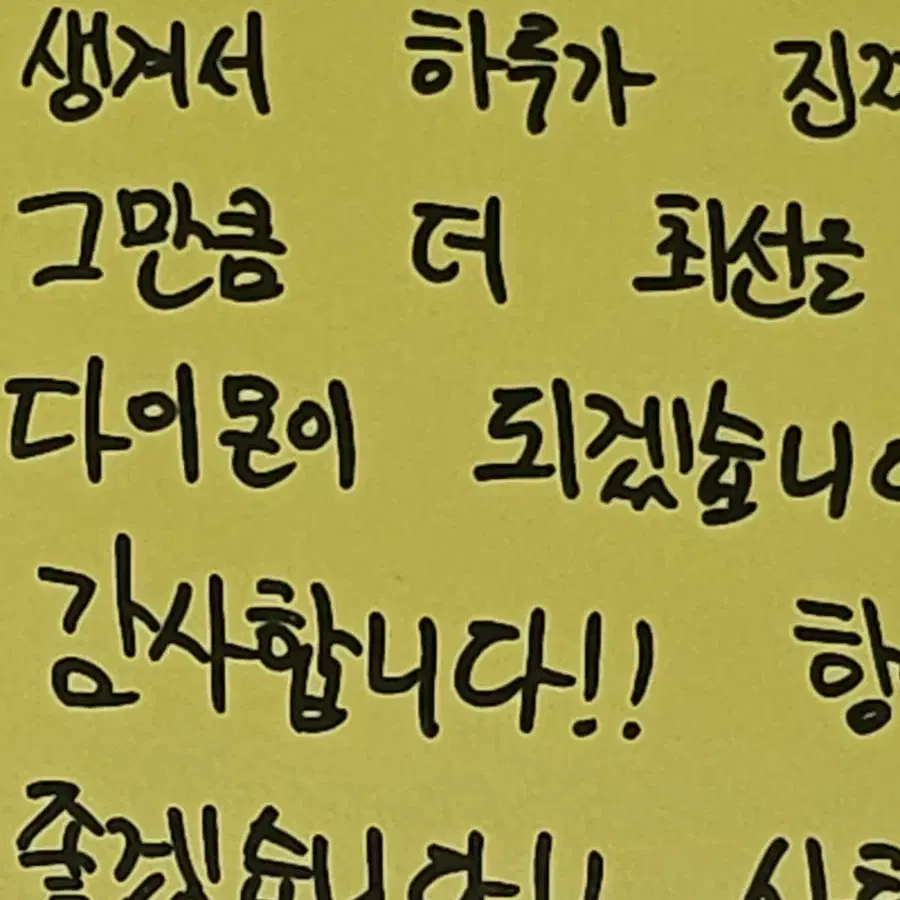 생겨서 하루가 진
그만큼 더 최선을
다이몬이 되겠습니다
감사합니다!! 항
좋겠습니다!!